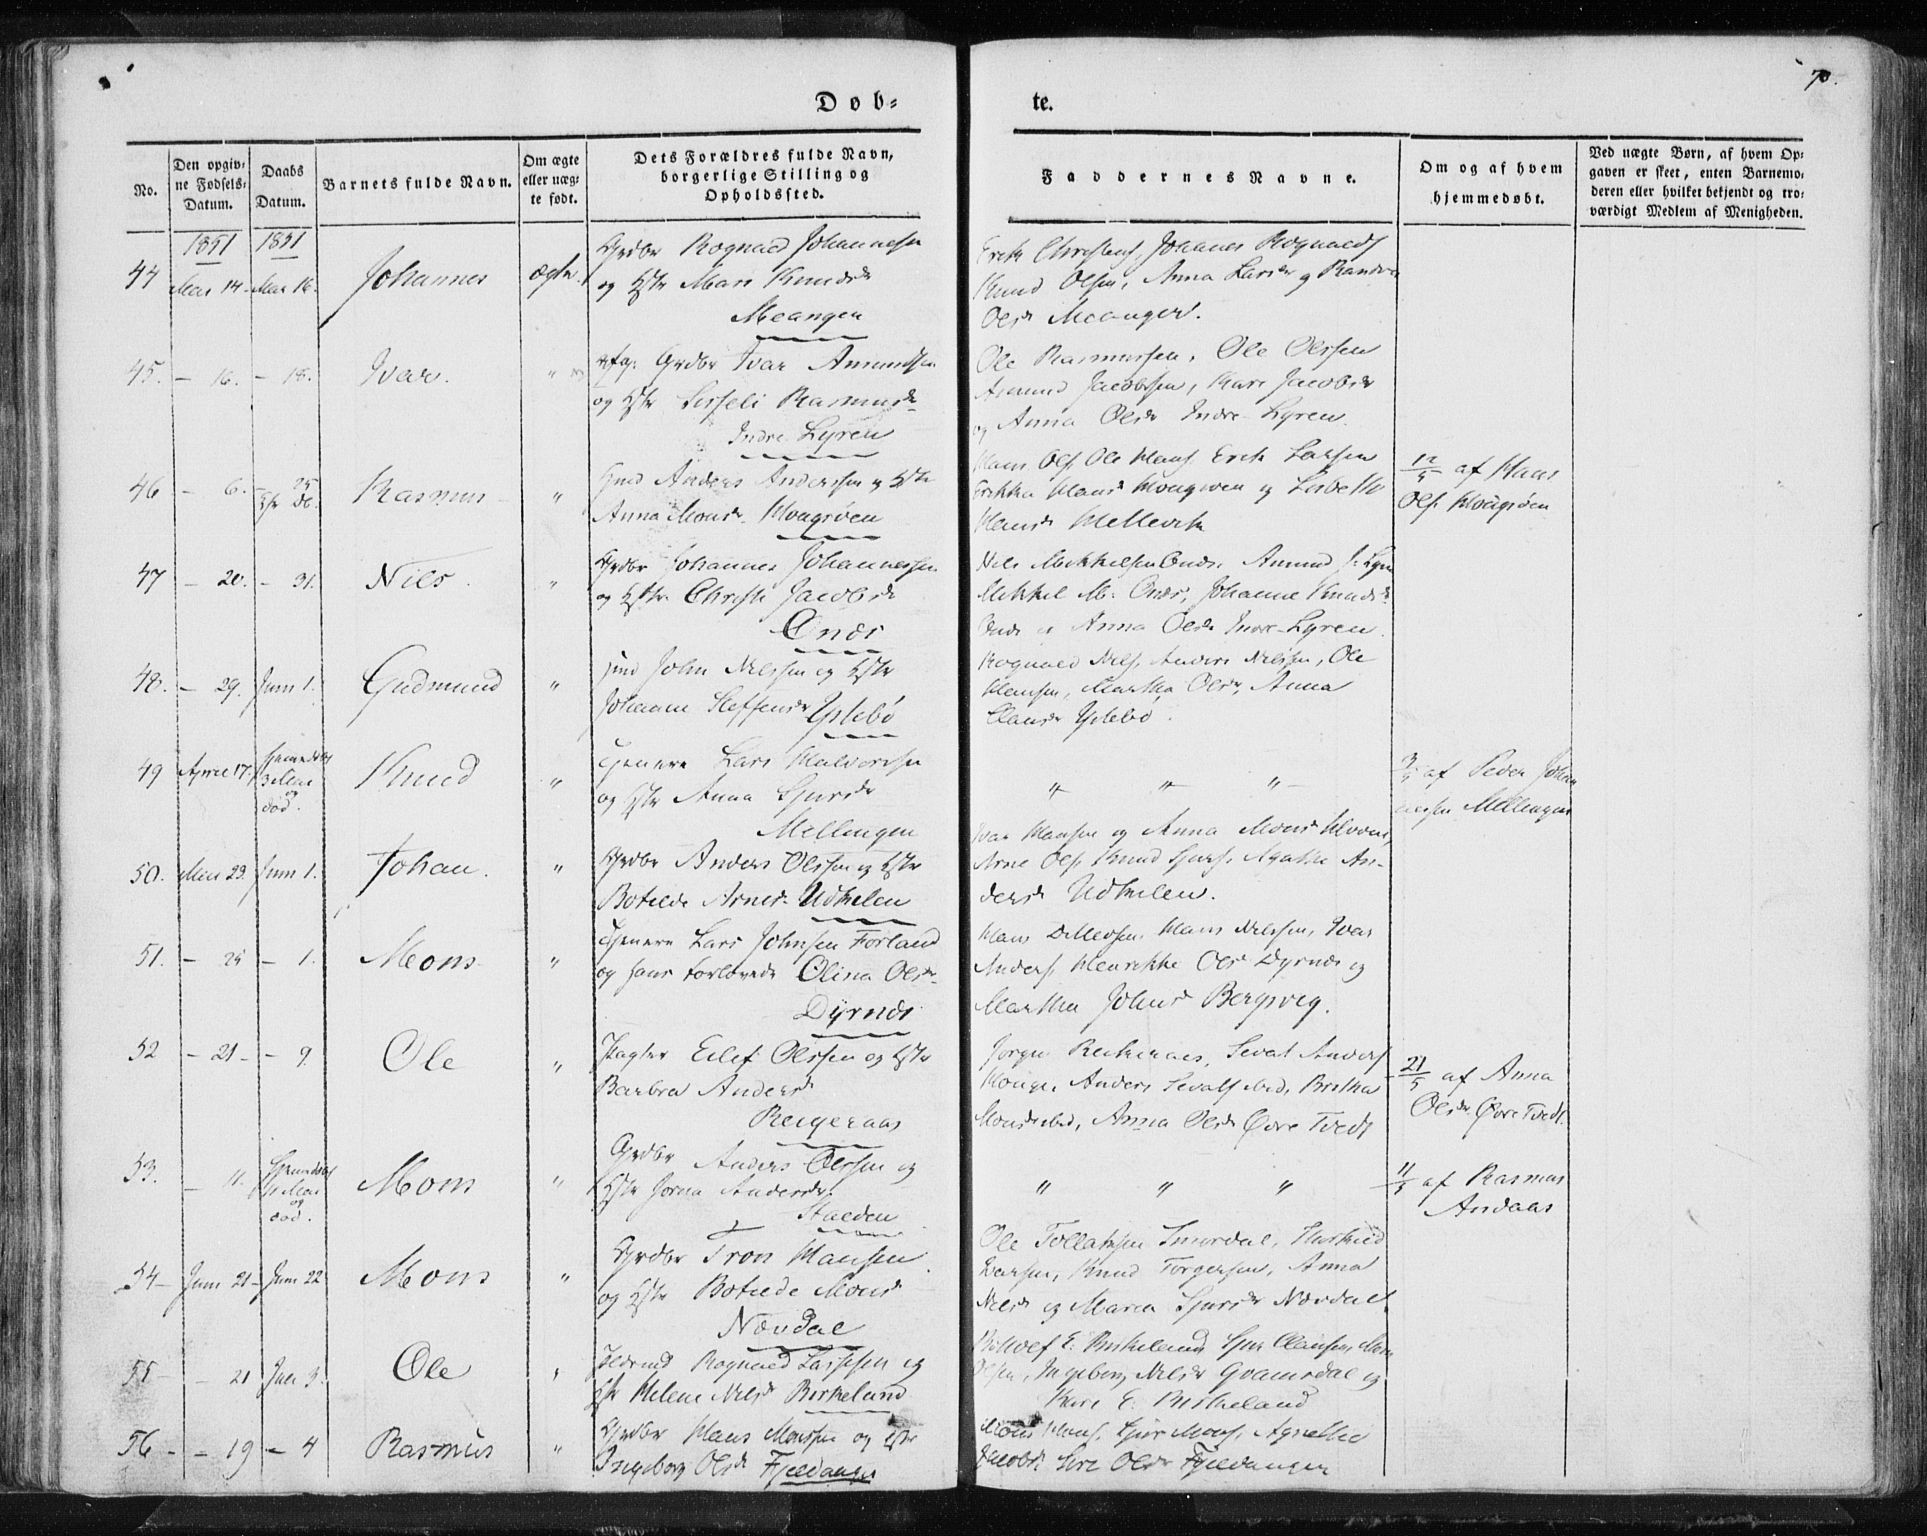 70.
Døb-
te.
No.
Den opgiv-
ne Fødsels-
Datum.
Daabs
Datum.
Barnets fulde Navn.
Om ægte
eller uæg-
te født.
Dets Forældres fulde Navn,
borgerlige Stilling og
Opholdssted.
Faddernes Navne.
Om og af hvem
hjemmedøbt.
Ved uægte Børn, af hvem Op-
gaven er skeet, enten Barnemo-
deren eller hvilket bekjendt og tro-
værdigt Medlem af Menigheden.
1851 1851
44 Mai 14. Mai 16. Johannes ægte.
Grdbr Rognald Johannessen
og Hstr Mari Knudsdr
Meangen
Johanes Rognalds
Knud Olsen, Anna Larsdr og
Olsdr Meanger.
45. - 16. - 18. Ivar. "
Grdbr Ivar Amundsen
og Hstr Lisseli Rasmusdr
Indre Lyren
Ole Rasmussen, Ole Olssen
Amund Jacobsen, Kari Jacobsdr
og Anna Olsdr Indre Lyren.
46 - 6. - 25 Rasmus "
Anders Anderssen og Hstr
Anna Monsdr Hougsøen
Hans Ols. Ole Hans. Erik Larsen
Hansdr Hougsøen og Lisbeth
Hansdr Hellevik
12/5 af Hans
Ols. Hougsøen
47 - 20. - 31. Niels. "
Grdbr Johannes Johannessen
og Hstr Christi Jacobsdr
Onæs
Nils Mikkelsen Onæs. Amund J. Lyren
Mikkel M. Onæs, Johanne Knudsdr
Onæs og Anna Olsdr Indre-Lyren.
48. - 29. Juni 1. Gudmund "
John Nilssen og Hstr
Johanne Steffensdr Ystebø
Rognald Nils. Anders Nilssen, Ole
Hansen, Martha Olsdr, Anna
Clausdr Ystebø.
49 April 17. Hjemmedøbt
3 Mai
og
død. Knud "
Tjenere Lars Halvorsen
og Hstr Anna Sjursdr
Mellingen
" " "
3/5 af Peder Johan
nessen Mellingen
50. Mai 23. Juni 1. Johan. "
Grdbr Anders Olssen og Hstr
Botilde Arnesdr Udkilen
Ivar Hansen og Anna Monsdr
Arne Ols. Knud Sjurs. Agatha An-
dersdr Udkilen.
51. - 25 - 1. Mons "
Tjenere Lars Johnsen Førland
og hans Forlovede Olina Olsdr
Dyrnæs
Hans Nilssen, Ivar
Anders. Henrikke Olsdr Dyrnæs og
Martha Johnsdr Bergsvig.
52 - 21 - - 9. Ole "
Pagter Eilef Olssen og Hstr
Barbra Andersdr
Reigeraas
Jørgen Sevat Anders
Houge, Anders Sevats ibid, Britha
Monsdr ibid, Anna Olsdr Øvre Tvedt
21/5 af Anna
Olsdr Øvre Tvedt
53. - 11. Hjemmedøbt
11 Mai
og
død. Mons "
Grdbr Anders Olssen og
Hstr Jorna Andersdr
Stalden
" " "
11/5 af Rasmus
Andaas
54 - Juni 21 - Juni 22 Mons "
Grdbr Tron Hansen
og Hstr Botilde Monsdr
Nævdal
Ole Tollaksen Smørdal,
Larsen, Knud Torgersen, Anna
Nilsdr og Maria Sjursdr Nævdal
55 - - 21 Juli 3. Ole "
Rognald Larssen og
Hstr Helene Nilsdr Birkeland
E. Birkeland Sjur Clausen
Olsen, Ingeborg Nilsdr Qvamsdal og
Kari E. Birkeland
56 - - 19 - 4 Rasmus "
Grdbr Hans Monssen og Hstr
Ingeborg Olsdr Fjeldanger
Mons Hans. Sjur Mons. Agnethe
Jacobsdr Siri Olsdr Fjeldanger